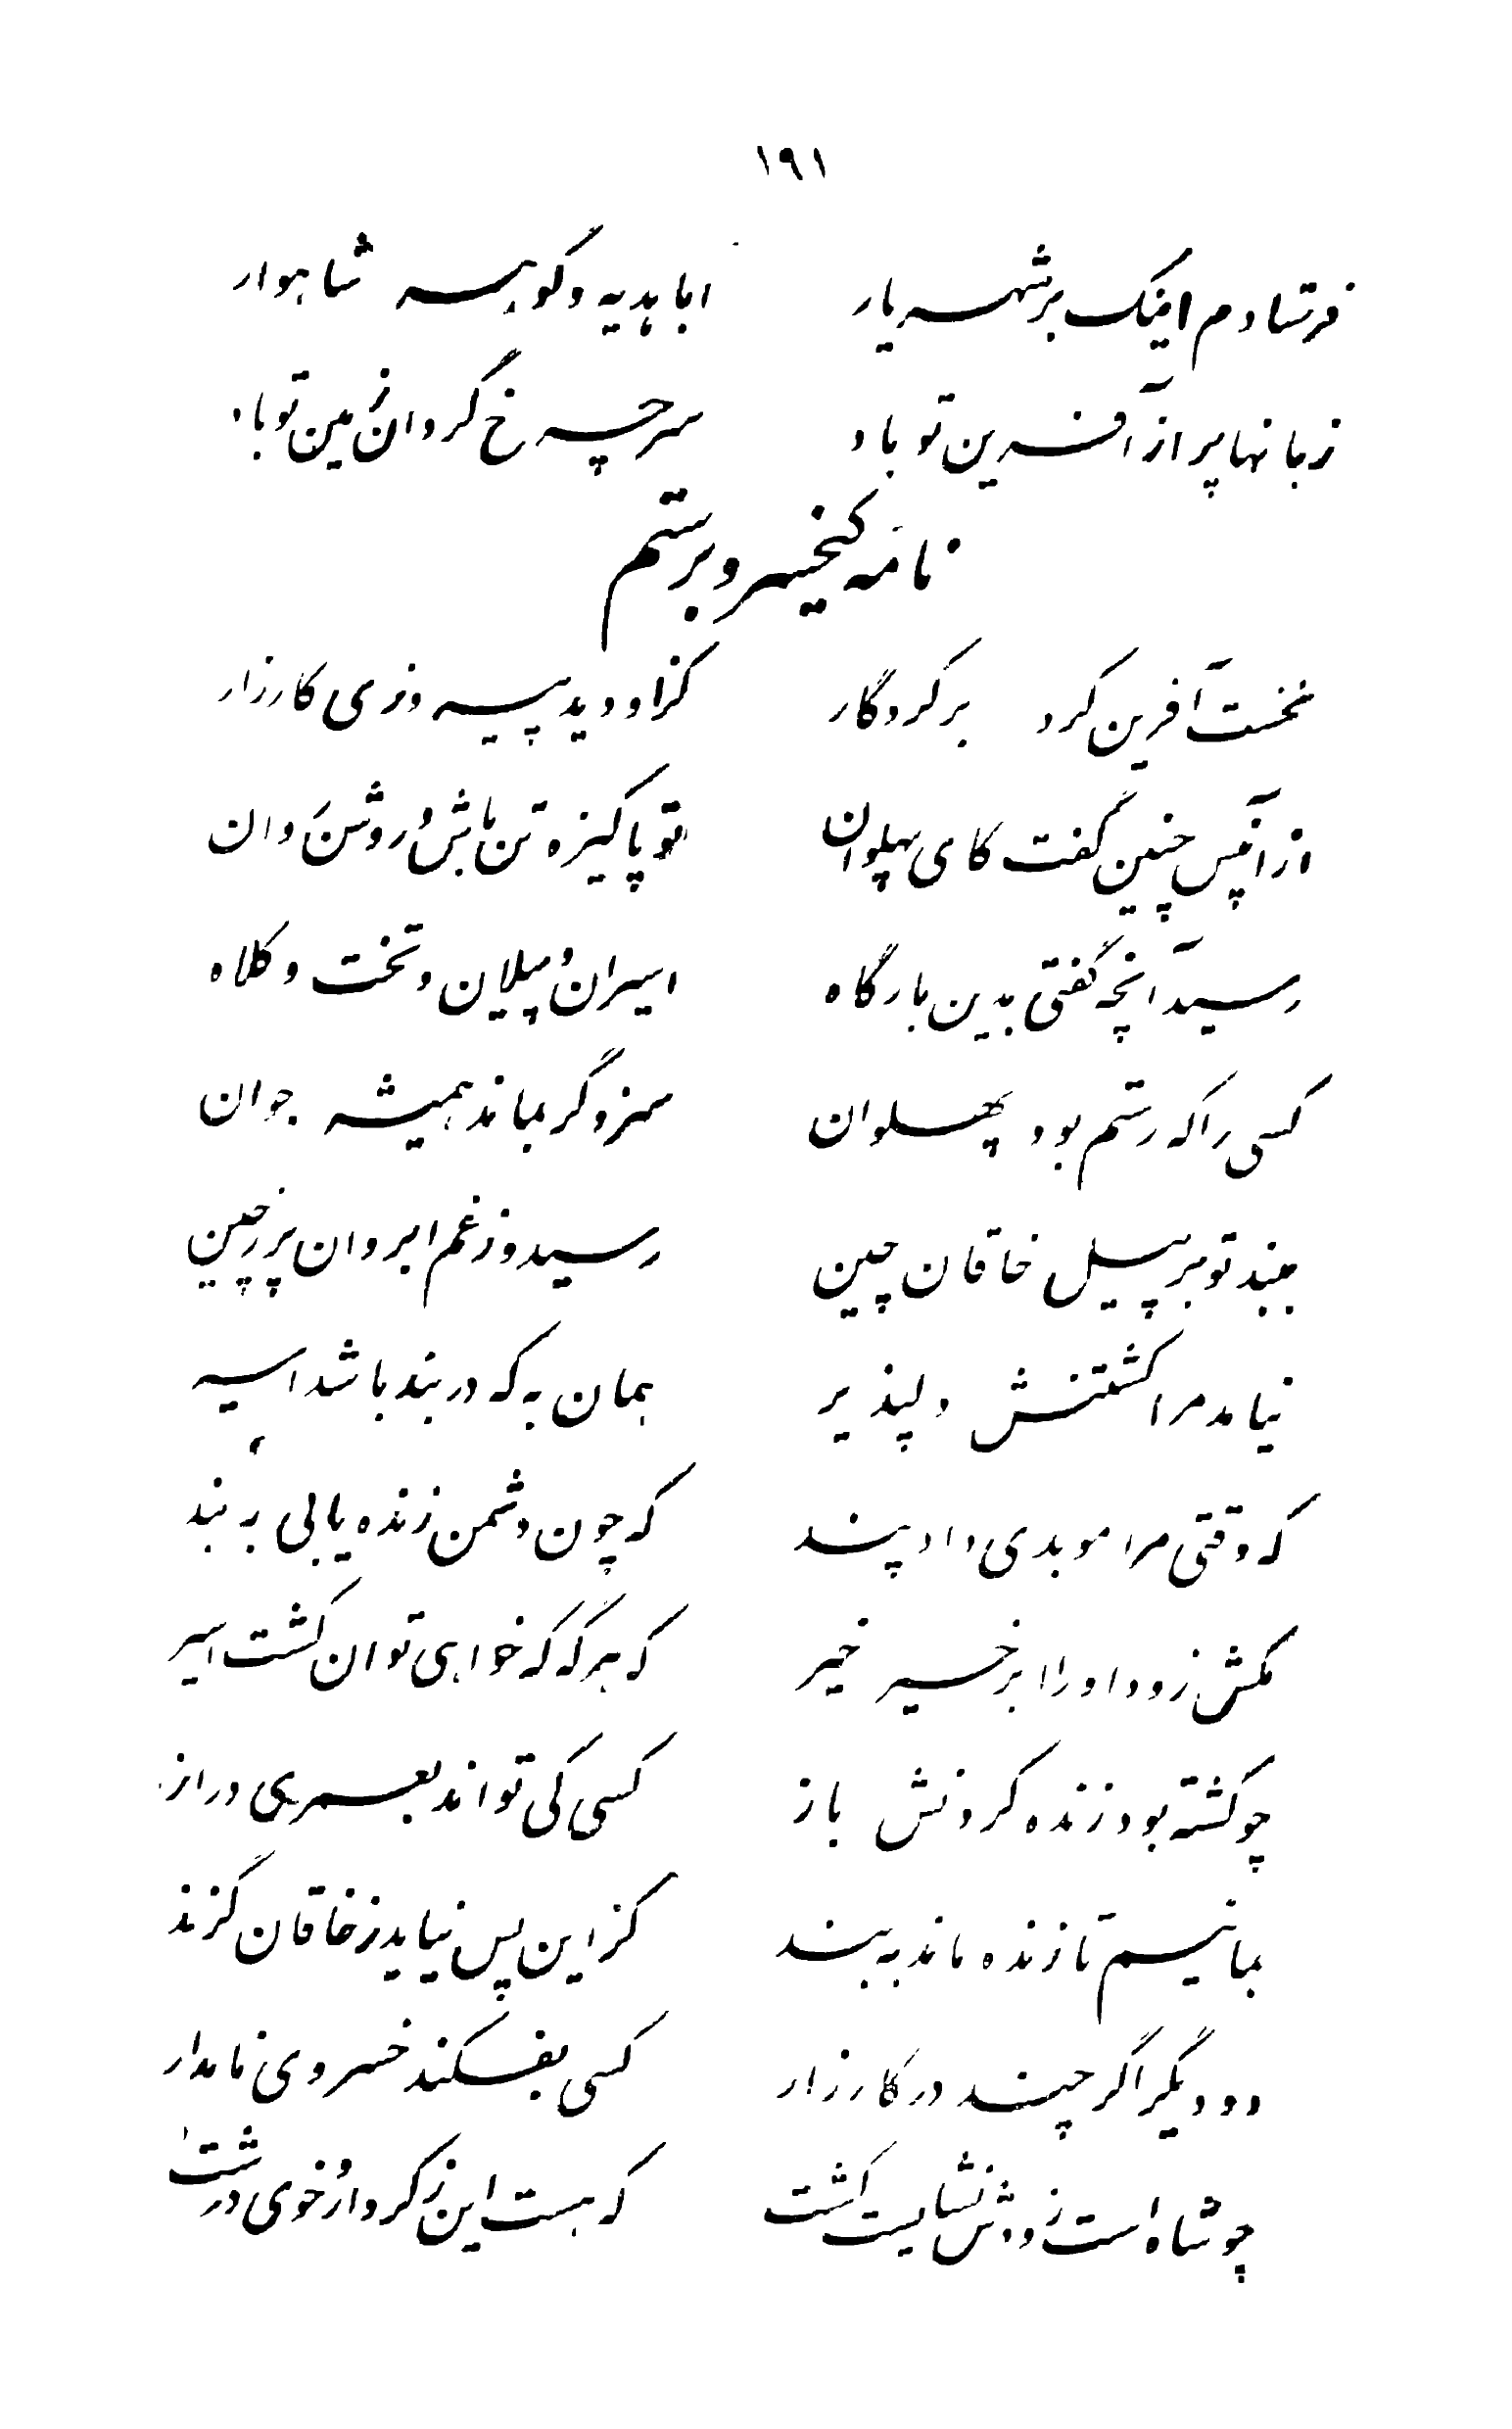 ۱۹۱
فرستادم اینک بر شهریار اباهدیه و گوهر شاهوار
زبانها پر از آفرین تو باد سر چرخ گردان زمین تو باد
نامه کیخسرو برستم
نخست آفرین کرد بر کردگار کزاو دید پیروزی کارزار
از آنپس چنین گفت کای پهلوان تو پاکیزه تن باش و روشن روان
رسید آنچه گفتی بدین بارگاه اسیران و پیلان و تخت و کلاه
کسی را که رستم بود پهلوان سزد گر بماند همیشه جوان
ببند تو بر پیل خاقان چین رسید و ز غم ابروان پر ز چین
نیامد مرا کشتنش دلپذیر همان به که در بند باشد اسیر
که وقتی مرا موبدی داد پند که چون دشمن زنده یابی به بند
مکش زود او را بر خیر خیر که هرگه که خواهی توان کشت اسیر
چو کشته بود زنده کردنش باز کسی کی تواند بعمری دراز
بمانیم تا زنده ماند به بند کز این پس نیاید ز خاقان گزند
دو دیگر اگر چند در کارزار کسی بفکند خسروی نامدار
چو شاه است زودش نشایست کشت که هست این ز کردار و خوی درشت